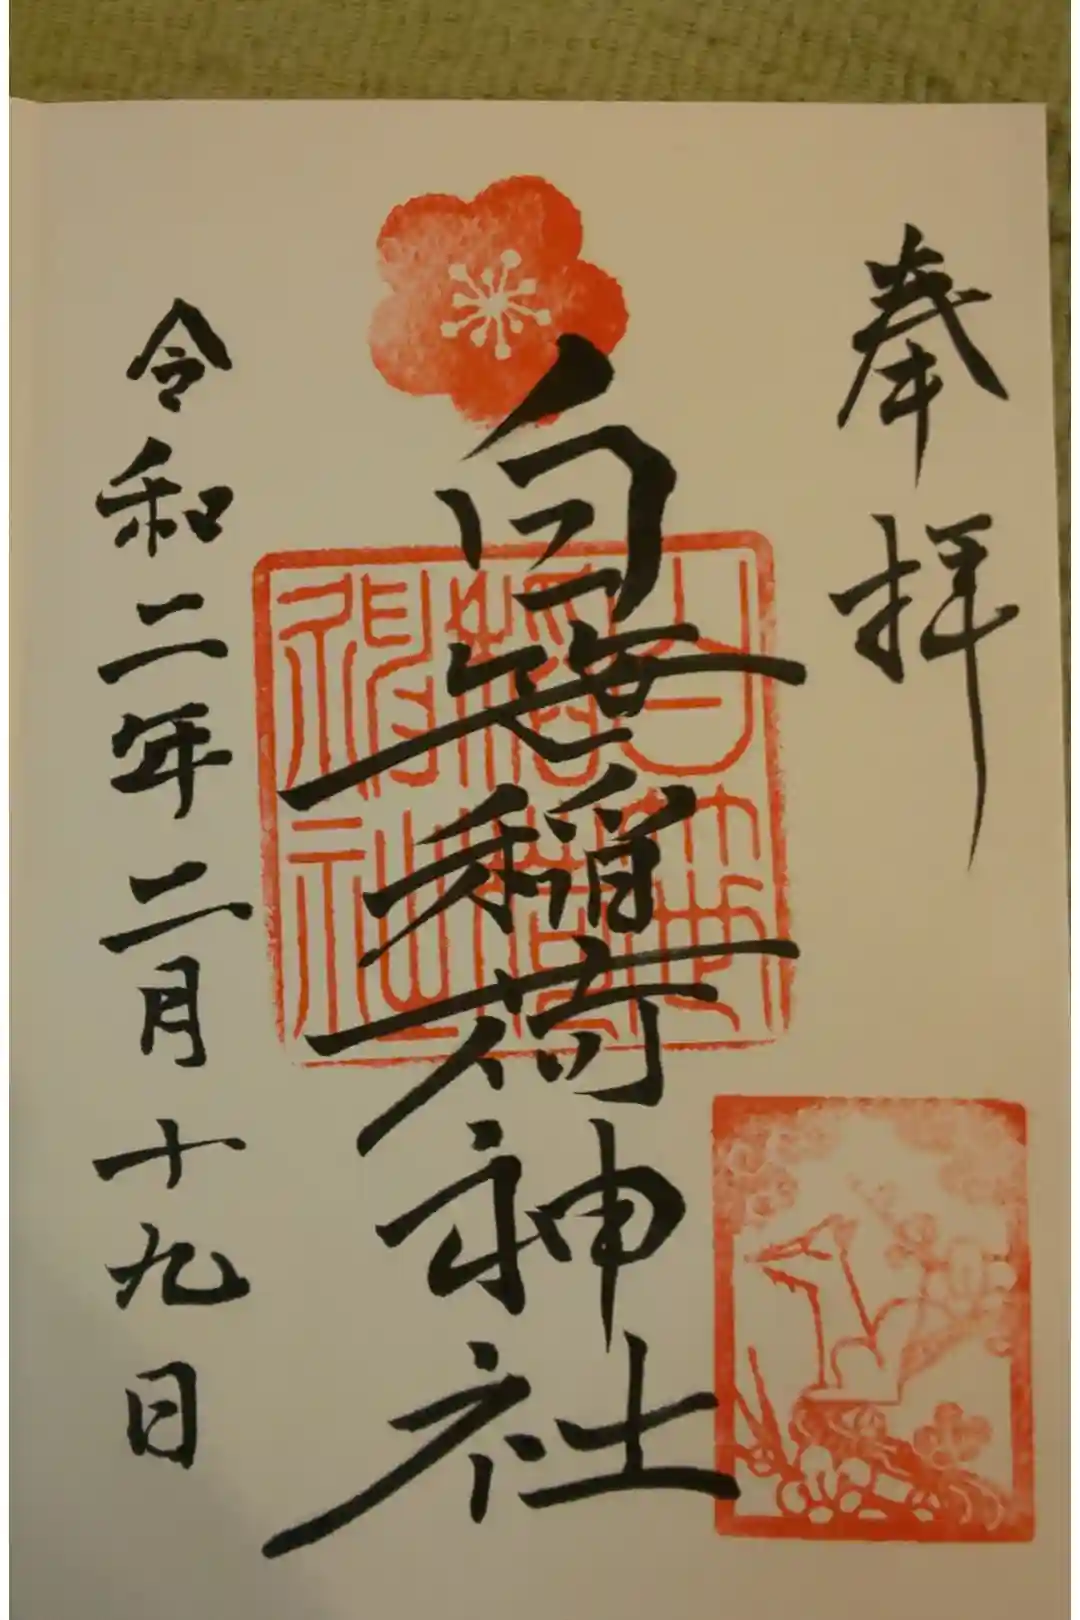 奉拝
白笹稲荷神社
令和二年二月十九日
白笹
稲荷
神社